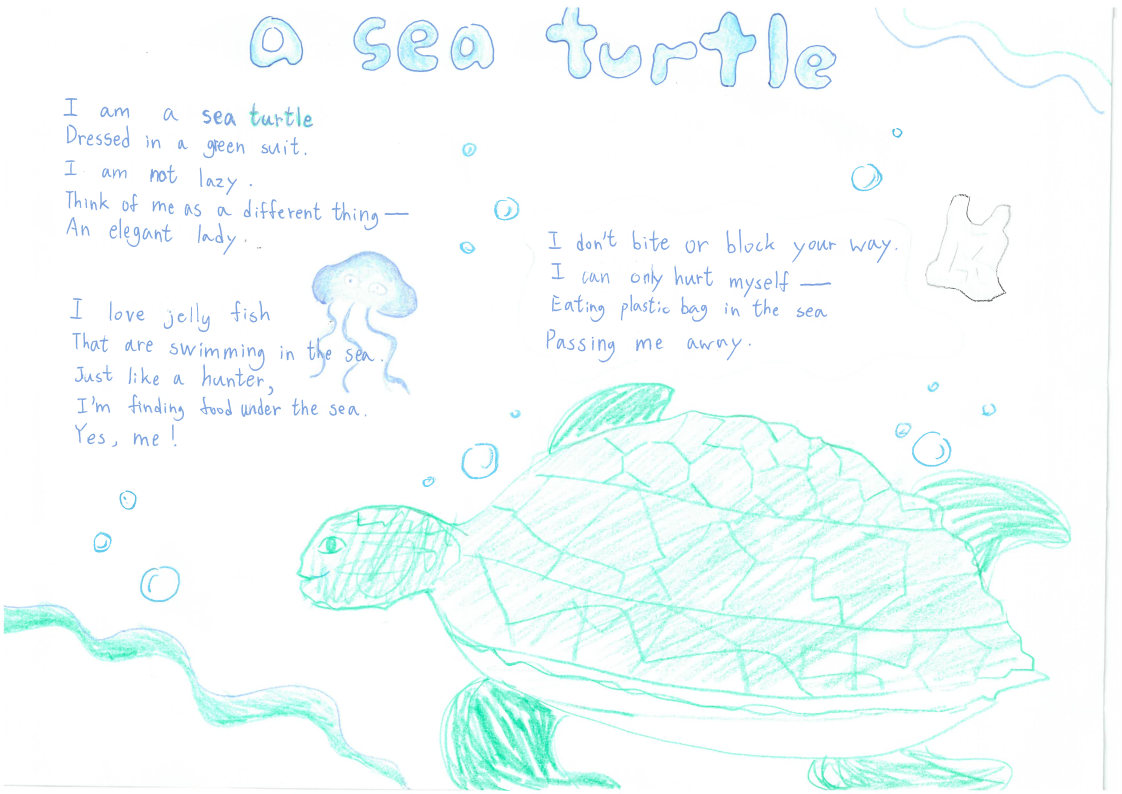 a sea turtle
I am a sea turtle
Dressed in a green suit.
I am not lazy.
Think of me as a different thing —
An elegant lady...
I love jelly fish
That are swimming in the sea.
Just like a hunter,
I'm finding food under the sea.
Yes, me!
I don't bite or block your way.
I can only hurt myself —
Eating plastic bag in the sea
Passing me away.